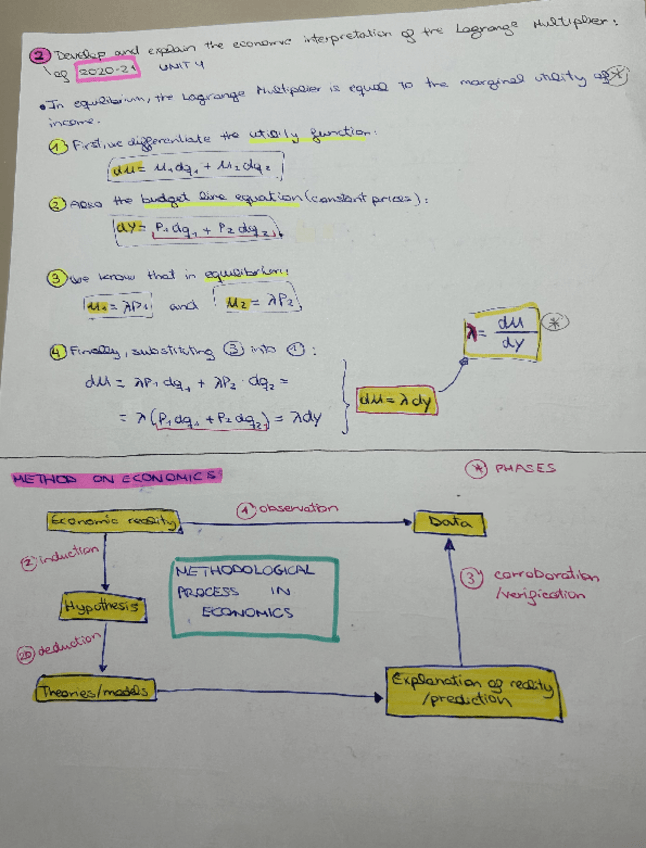 2 Develop and explain the economic interpretation of the Lagrange Multiplier:
2020-21 UNIT 4
• In equilibrium, the Lagrange Multiplier is equal to the marginal utility of *
income.
1 First, we differentiate the utility function:
du = u₁dq₁ + u₂dq₂
2 Also the budget line equation (constant prices):
dy = P₁dq₁ + P₂dq₂
3 We know that in equilibrium:
u₁ = λP₁ and u₂ = λP₂
4 Finally, substituting 3 into 1:
du = λP₁dq₁ + λP₂·dq₂ =
= λ(P₁dq₁ + P₂dq₂) = λdy
du = λdy
λ = du/dy *
METHOD ON ECONOMICS
* PHASES
Economic reality
1 observation
Data
2 induction
METHODOLOGICAL
PROCESS IN
ECONOMICS
3 corroboration
/verification
Hypothesis
deduction
Theories/models
Explanation of reality
/prediction